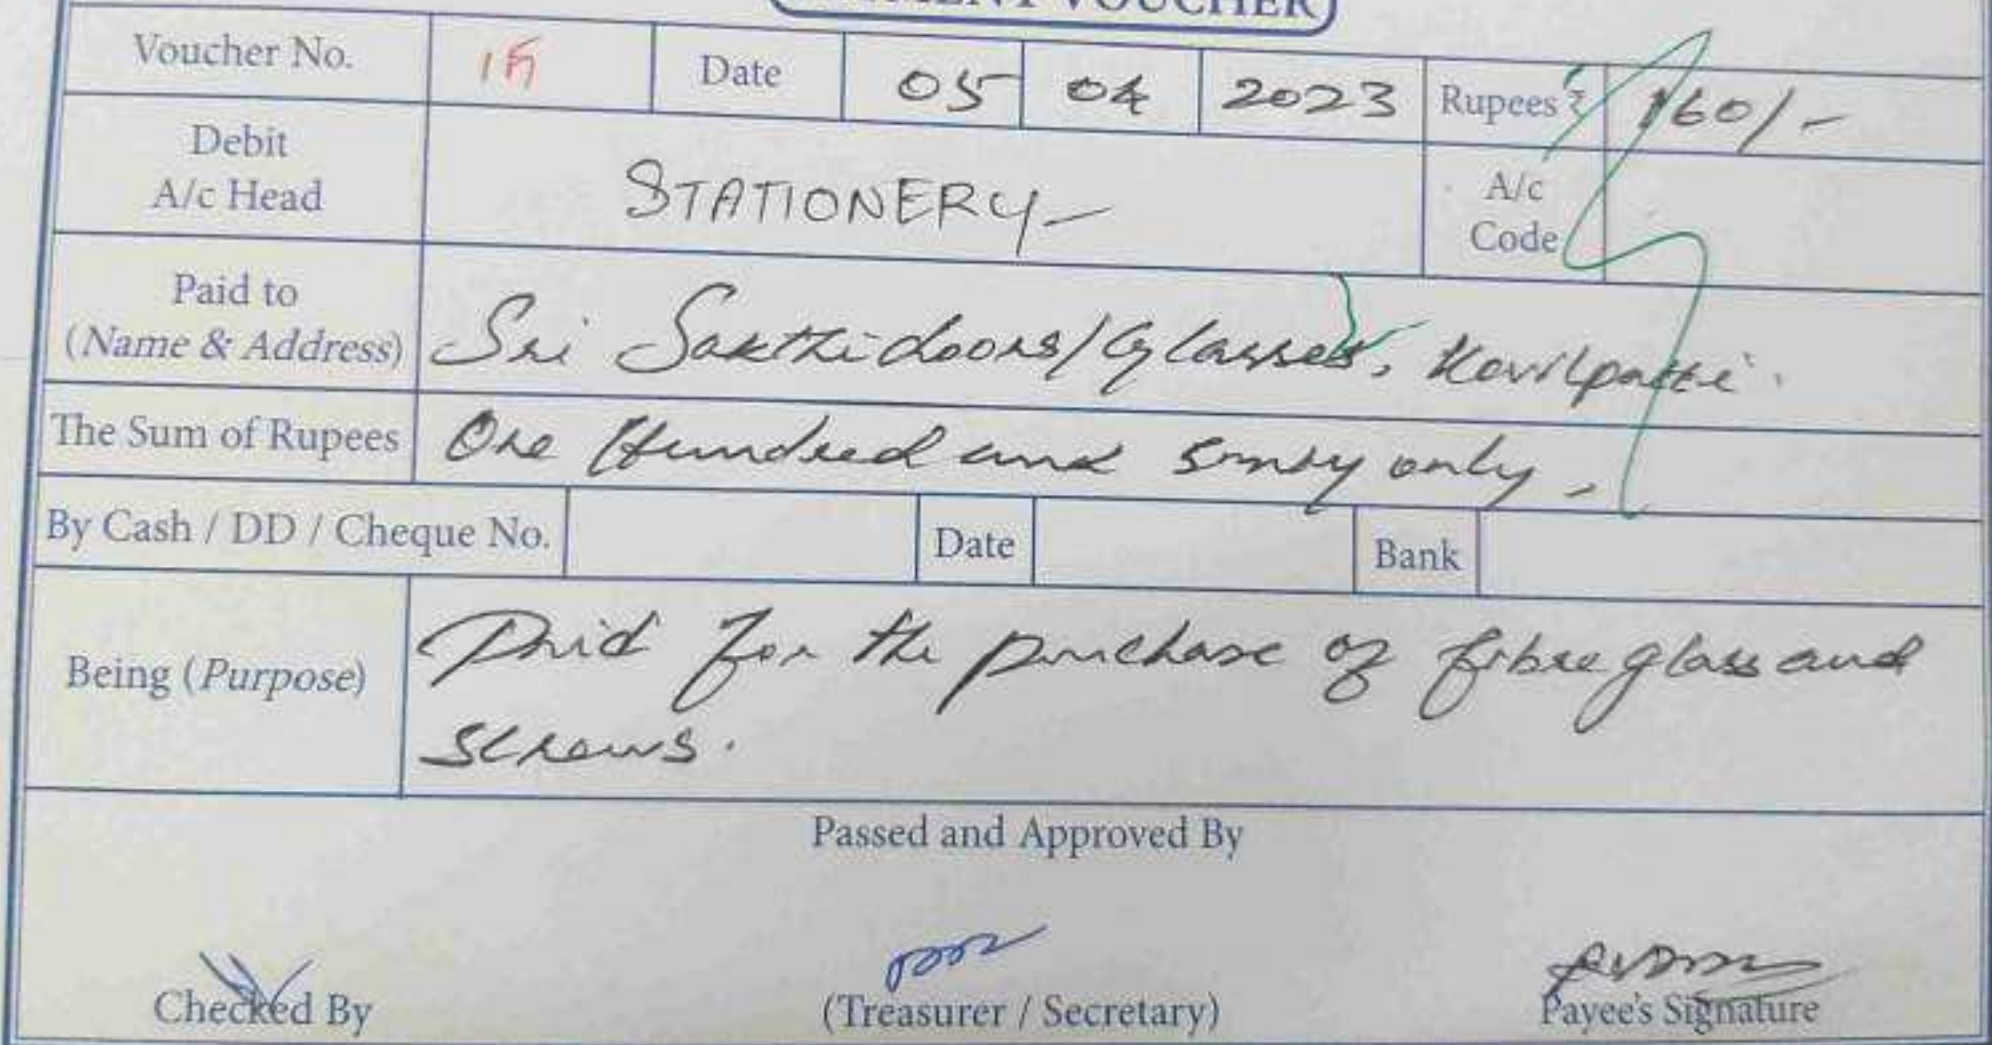 PAYMENT VOUCHER
Voucher No. Date 05 04 2023 Rupees ₹ 160/-
Debit A/c Head STATIONERY A/c Code
Paid to (Name & Address) Sri Sakthi doors/Glasses, Kovilpatti.
The Sum of Rupees One Hundred and Sixty only,
By Cash / DD / Cheque No. Date Bank
Being (Purpose) Paid for the purchase of fibre glass and
screws.
Passed and Approved By
Checked By (Treasurer / Secretary) Payee's Signature